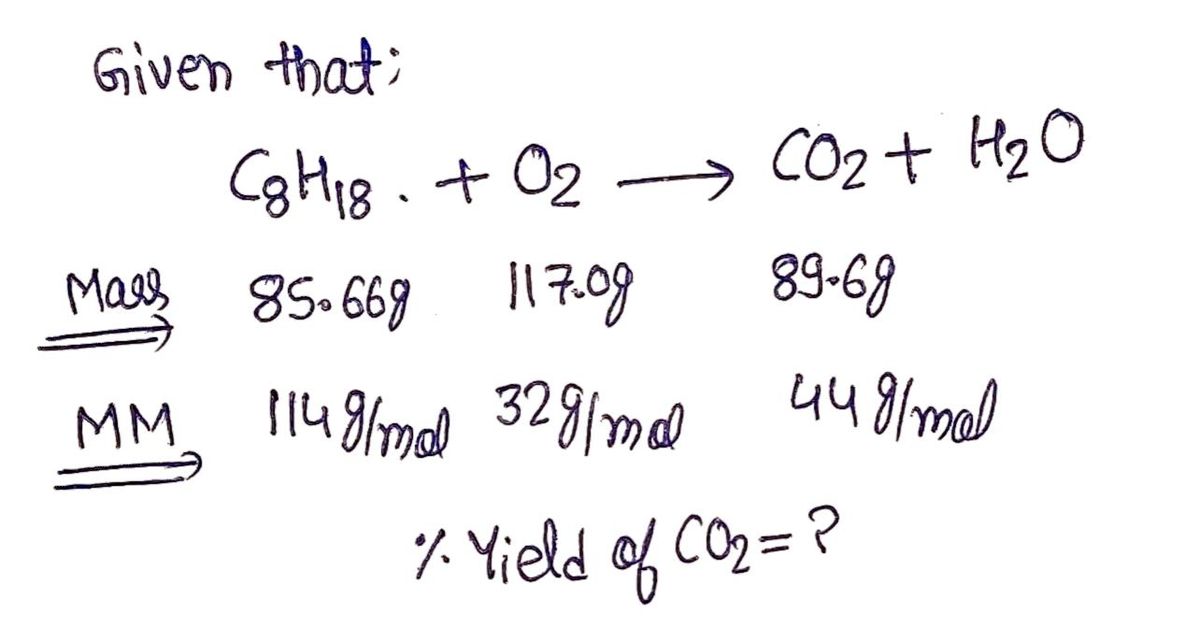 Given that;
C8H18. + O2 → CO2 + H2O
Mass 85.66g 117.0g 89.6g
MM 114g/mol 32g/mol 44g/mol
% Yield of CO2 = ?